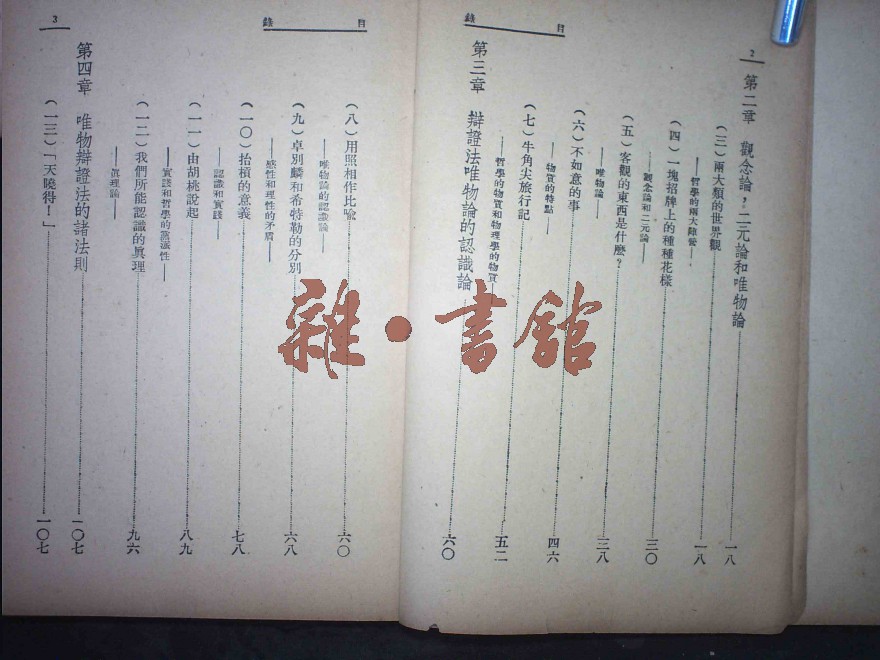 2
第二章　觀念論，二元論和唯物論……一八
（三）兩大類的世界觀……一八
——哲學的兩大陣營——
（四）一塊招牌上的種種花樣……三〇
——觀念論和二元論——
（五）客觀的東西是什麼？……三八
——唯物論——
（六）不如意的事……四六
——物質的特點——
（七）牛角尖旅行記……五二
——哲學的物質和物理學的物質——
第三章　辯證法唯物論的認識論……六〇
目錄
目錄
（八）用照相作比喩……六〇
——唯物論的認識論——
（九）卓別麟和希特勒的分別……六八
——感性和理性的矛盾——
（一〇）抬槓的意義……七八
——認識和實踐——
（一一）由胡桃說起……八九
——實踐和哲學的黨派性——
（一二）我們所能認識的眞理……九六
——眞理論——
第四章　唯物辯證法的諸法則……一〇七
（一三）「天曉得！」……一〇七
3
雜·書館